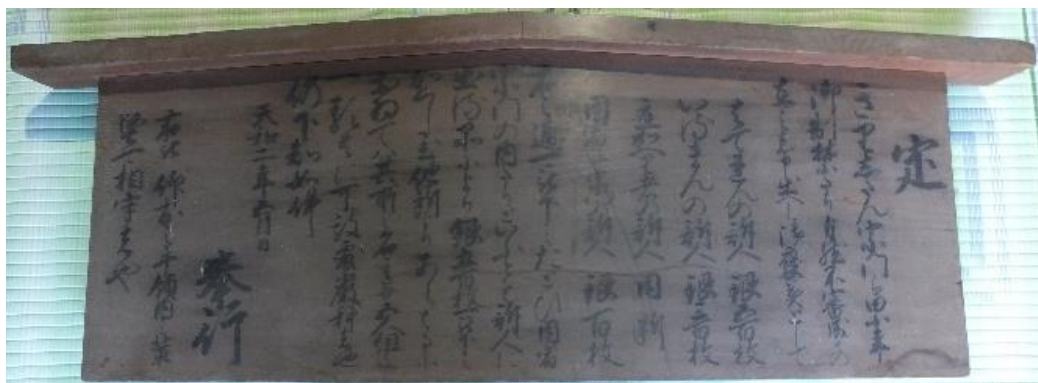 定
きりしたん宗門は累年
御制禁たり自然不審成もの
有之は申出へし御褒美として
はてれんの訴人 銀五百枚
いるまんの訴人 銀三百枚
立かへり者の訴人 同断
同宿并宗門の訴人 銀百枚
右之通可被下之たとひ同宿
宗門の内たりといふとも訴人に
出る品により銀五百枚可被下之
かくし置他所よりあらはるゝに
おゐては其所之名主并五人組
迄一類ともに可被処厳科者也
仍下知如件
天和二年五月日
奉行
右被 仰出之 領内之輩
堅可相守者也